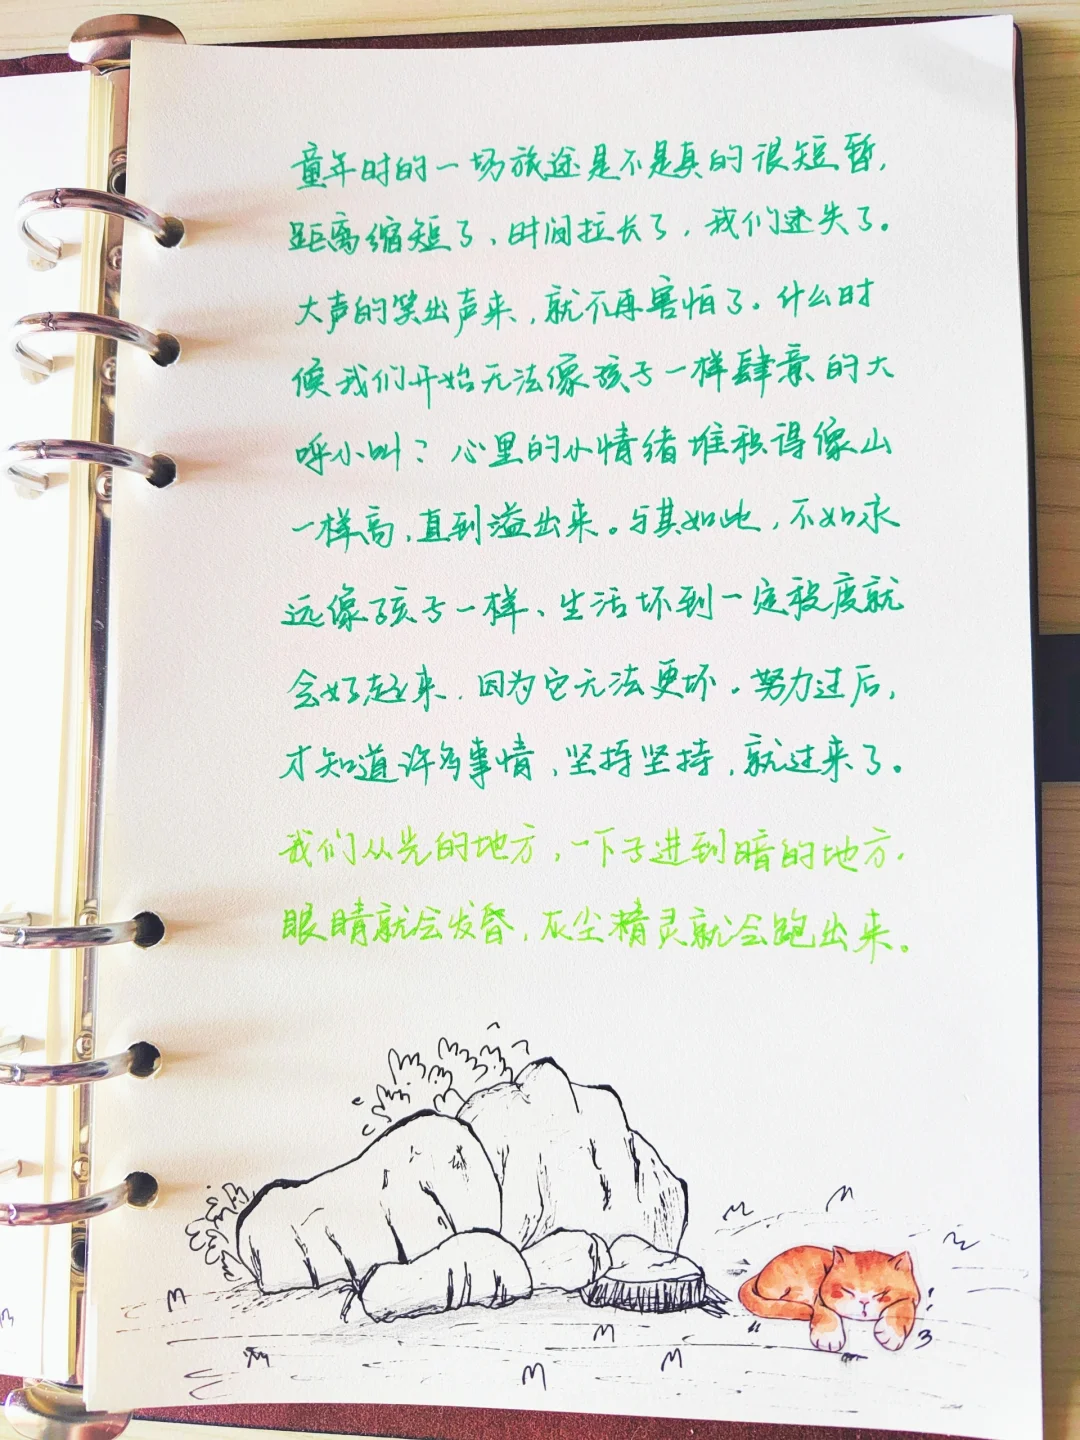 童年时的一场旅途是不是真的很短暂，
距离缩短了、时间拉长了，我们迷失了。
大声的笑出声来，就不再害怕了。什么时
候我们开始无法像孩子一样肆意的大
呼小叫？心里的小情绪堆积得像山
一样高，直到溢出来。与其如此，不如永
远像孩子一样、生活坏到一定程度就
会好起来，因为它无法更坏。努力过后，
才知道许多事情，坚持坚持，就过来了。
我们从光的地方，一下子进到暗的地方，
眼睛就会发昏，灰尘精灵就会跑出来。